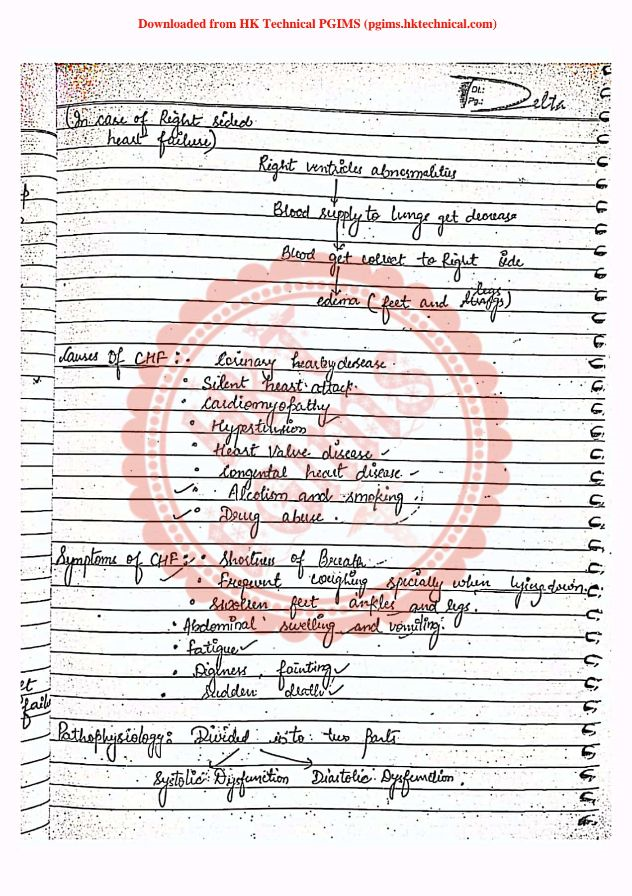 Downloaded from HK Technical PGIMS (pgims.hktechnical.com)
Dt.:
Pg.:
Delta
(In case of Right sided
heart failure)
Right ventricles abnormalities
Blood supply to lungs get decrease
Blood get collect to Right side
legs
edema (feet and )
Causes Of CHF :- Corinary heart disease
Silent heart attack.
Cardiomyopathy
Hypertension
Heart Valve disease
Congental heart disease
Alcolism and smoking
Drug abuse.
Symptoms of CHF:- Shortness of Breath
Frequent coughing specially when lying down.
Swollen feet ankles and legs.
Abdominal swelling and vomiting.
fatigue
Diginess, fainting
Sudden death
et
fail
Pathophysiology: Divided into two parts
Systolic Dysfunction Diastolic Dysfunction.